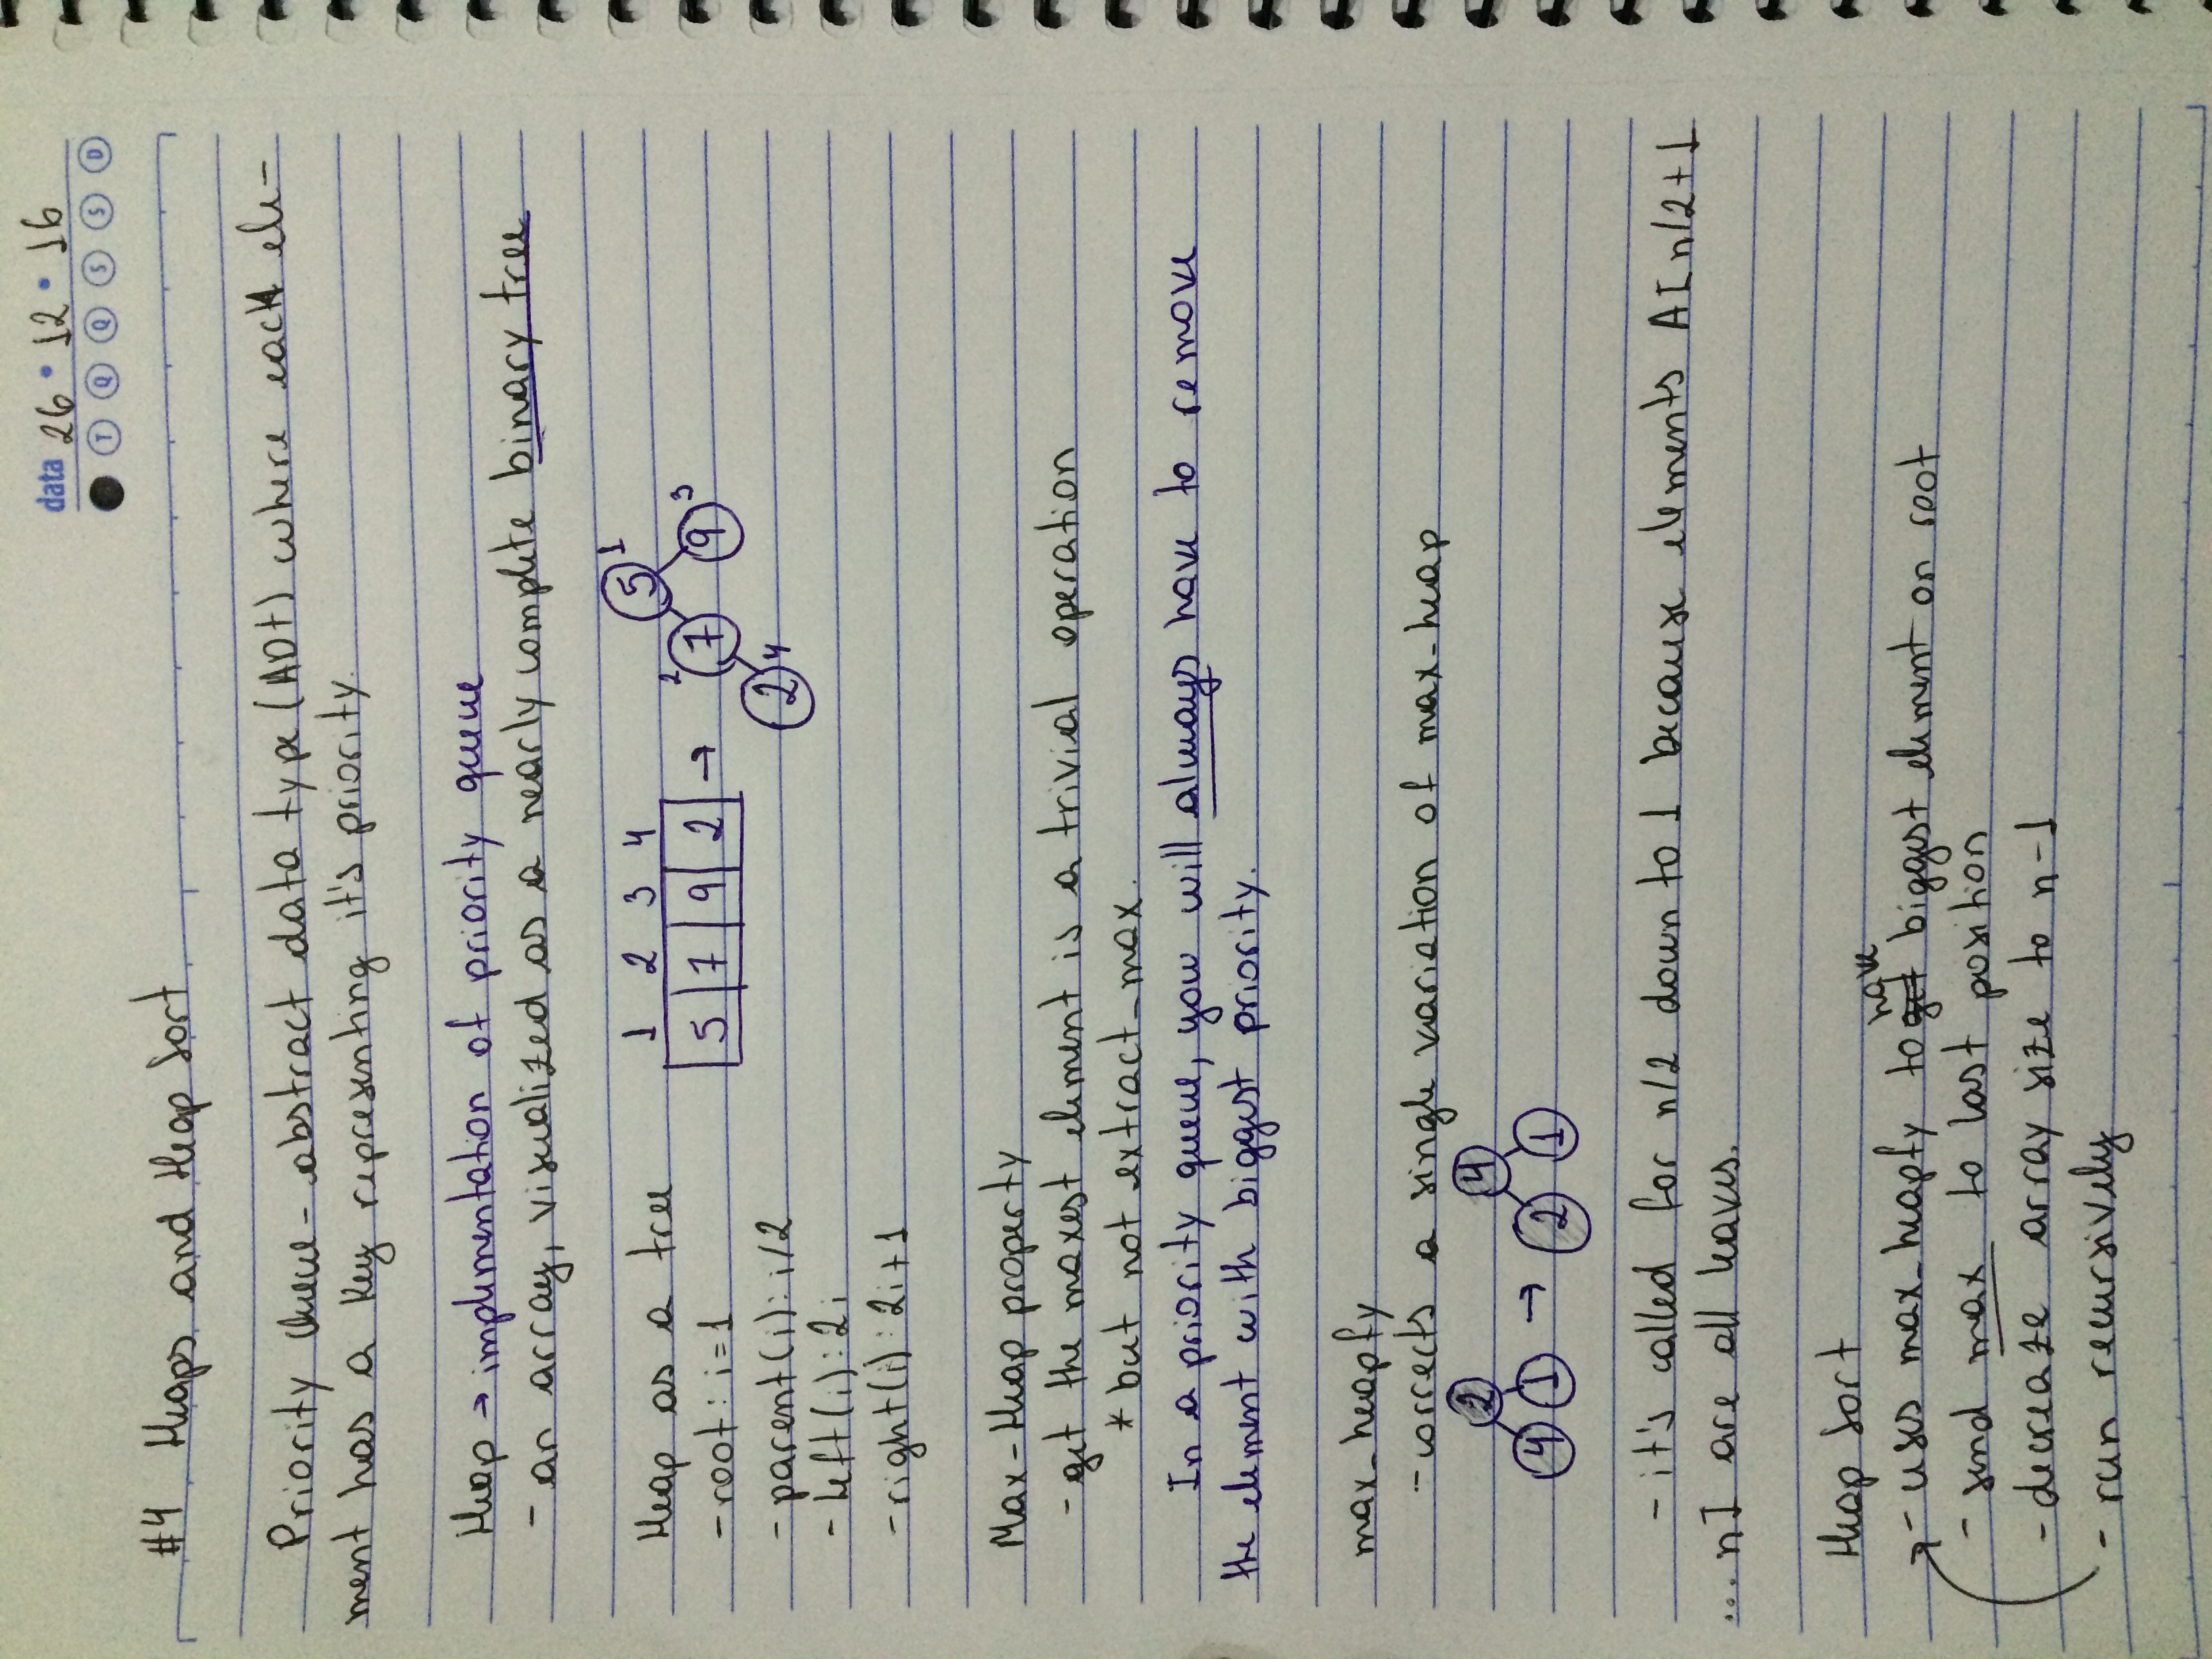 data 26 • 12 • 16
T Q Q S S D
#4 Heaps and Heap Sort
Priority Queue - abstract data type (ADT) where each ele-
ment has a key representing it's priority.
Heap → implementation of priority queue
- an array, visualized as a nearly complete binary tree
Heap as a tree
- root: i=1
- parent(i): i/2
- left(i): 2i
- right(i): 2i+1
1 2 3 4
5 7 9 2 →
5 1
2 7 9 3
2 4
Max-Heap property
- get the maxest element is a trivial operation
* but not extract_max.
In a priority queue, you will always have to remove
the element with biggest priority.
max_heapfy
- corrects a single variation of max_heap
2 4
4 1 → 2 1
- it's called for n/2 down to 1 because elements A[n/2+1
...n] are all leaves.
Heap Sort
- uses max_heapfy to get have biggest element on root
- send max to last position
- decreaze array size to n-1
- run recursively